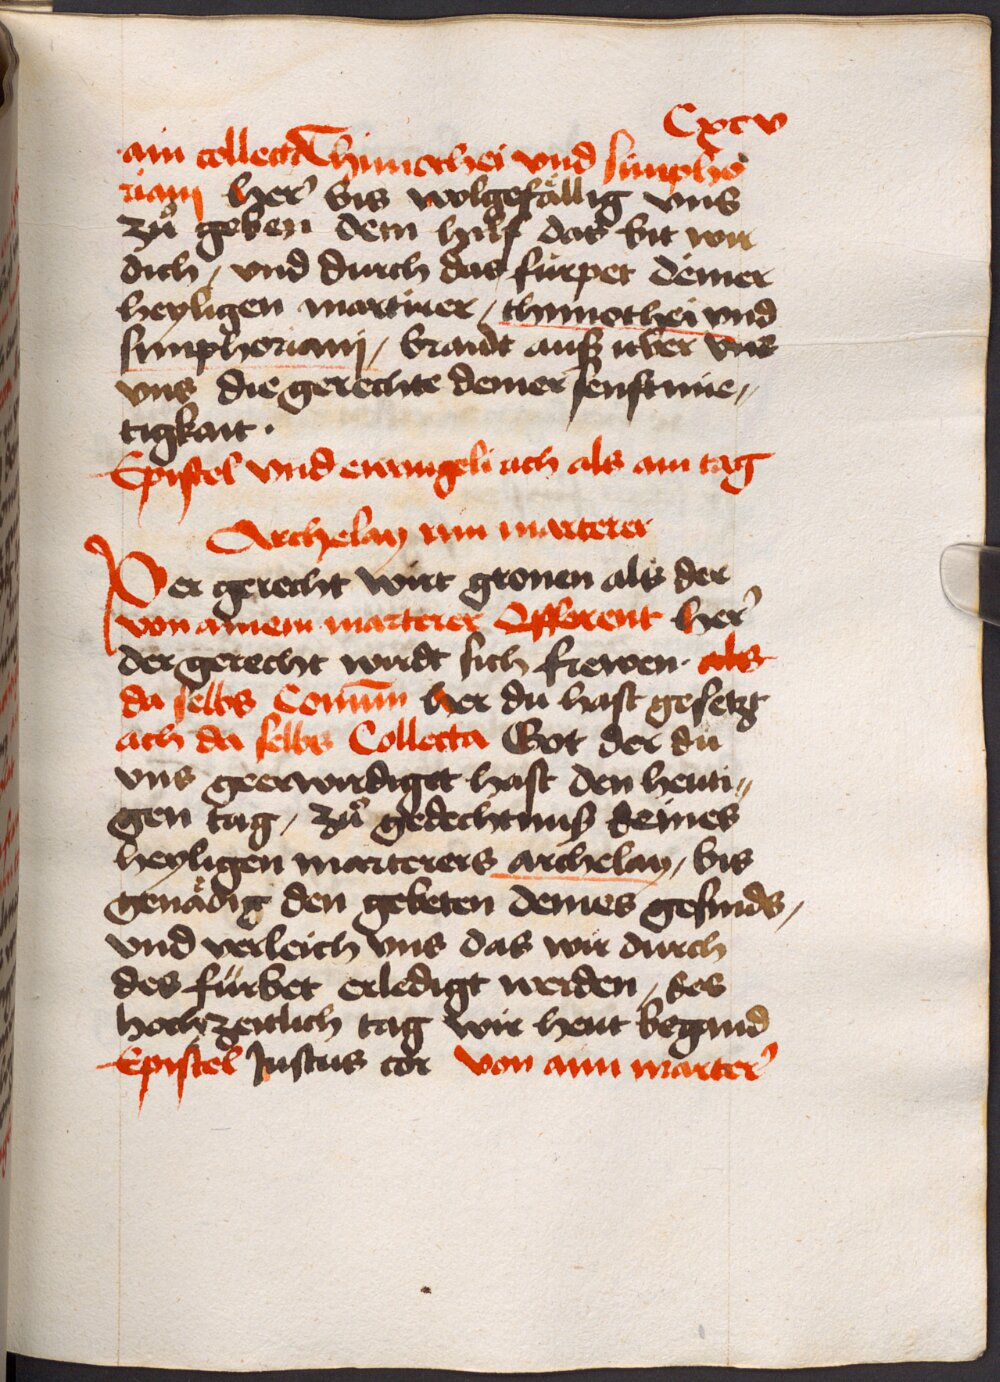 Cxcv
ain collecta Thimothei vnd simpho
riani her̉ bis wolgefällig vns
zů geben dein hilf das bit wir
dich / vnd durch das fürpet deiner
heyligen martirer / thimothei vnd
simphoriani / braidt auß über vns
vns die gerechte deiner senftmüe„
tigkait ·
Epistel vnd ewangeli ach als am tag
Archelay ain marterer
Der gerecht wirt gronen als der
von ainem marterer Offerent her̉
der gerecht wirdt sich frewen · als
da selbs Comūn her du hast gesetzt
ach da selbs Collecta Got der du
vns geerwirdiget hast den heuti„
gen tag / zů gedechtnuß deines
heyligen marterers archelay / bis
genädig den gebeten deines gesinds /
vnd verleich vns das wir durch
des fürbet erledigt werden / des
hochzeitlich tag wir heut begand
Epistel Justus cor von ain marter̉